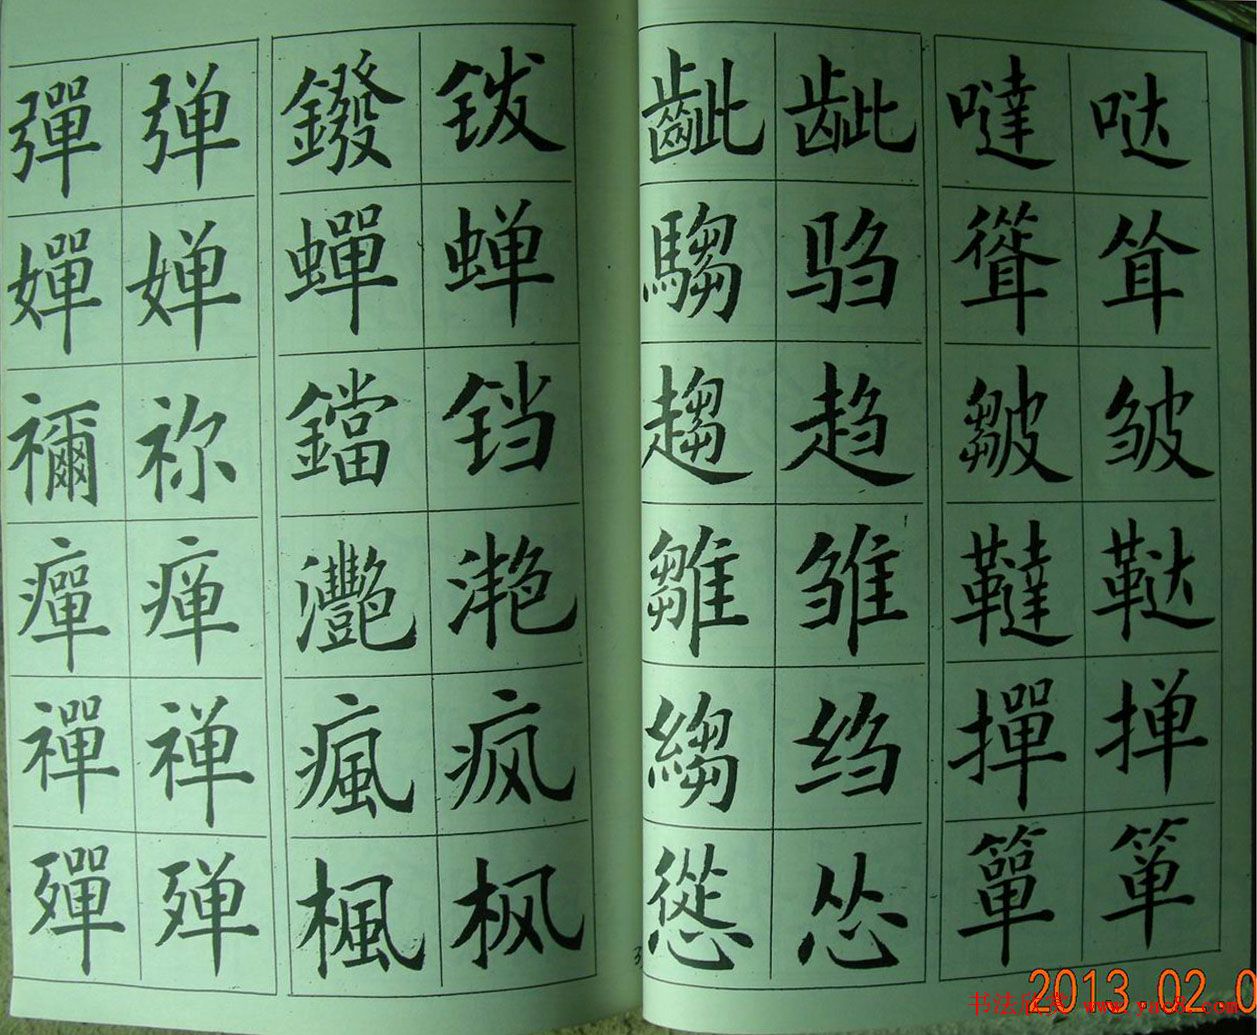 彈 弹 鏺 䥽
嬋 婵 蟬 蝉
禰 祢 鐺 铛
癉 瘅 灧 滟
禪 禅 瘋 疯
殫 殚 楓 枫
齜 龇 噠 哒
騶 驺 聳 耸
趨 趋 皺 皱
雛 雏 韃 鞑
縐 绉 撣 掸
慫 怂 簞 箪
3
2013.02.0
书法欣赏 www.yac8.com